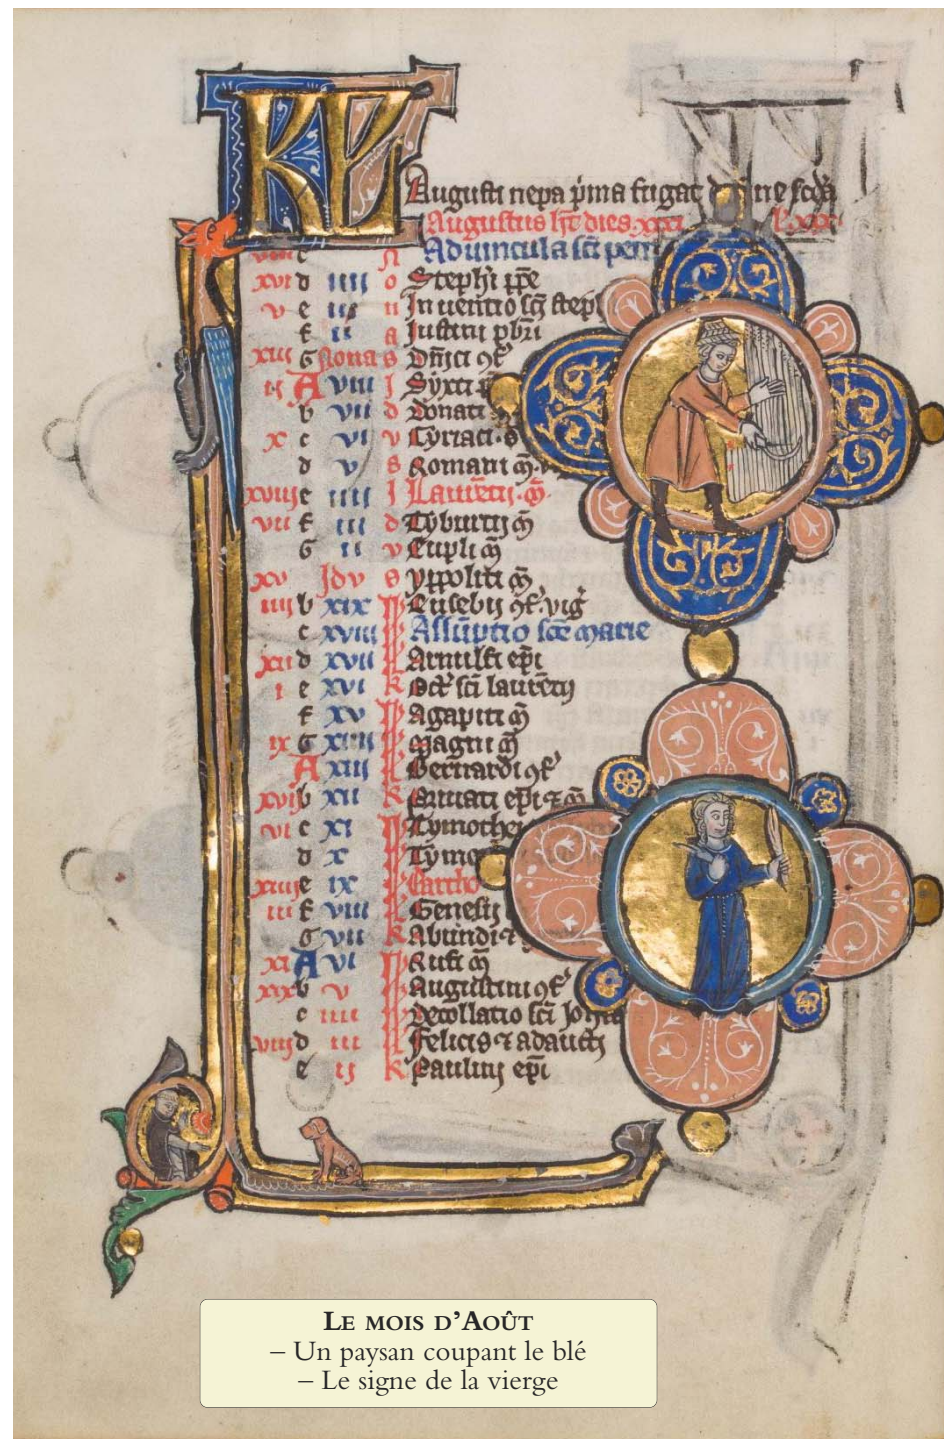 KL
Augusti nepa p̄ima fugat de fine scd̄a
Augustus h̄t dies xxxi
viii c n Aduincula sc̄i petri
xvi d iiii o Steph̄i p̄p̄e
v e iii n Inuentio sc̄i steph
f ii a Justini p̄bri
xiii G Nonas s Dn̄ici 9f
ii A viii I Syxti
b vii d Donati
x c vi v Cyriaci
d v s Romani m̄
xviii e iiii I Laurētij m̄
vii f iii d Tyburtij m̄
G ii v Eupli m̄
xv Idv s yppoliti m̄
iiii b xix Eusebij 9f viḡ
c xviii Assūptio sc̄e marie
xii d xvii Arnulfi ep̄i
i e xvi k Oct̄ sc̄i laurētij
f xv Agapiti m̄
ix G xiiii Magni m̄
A xiii Bernardi 9f
xvii b xii k Priuati ep̄i ⁊ m̄
vi c xi Tymothei
d x Tymo
xiiii e ix Bartho
iii f viii Genesij
G vii k Abundi ⁊
xi A vi Rufi m̄
xix b v Augustini 9f
c iiii Decollatio sc̄i Joh̄is
viii d iii Felicis ⁊ adaucti
e ii k Paulini ep̄i
LE MOIS D'AOÛT
– Un paysan coupant le blé
– Le signe de la vierge